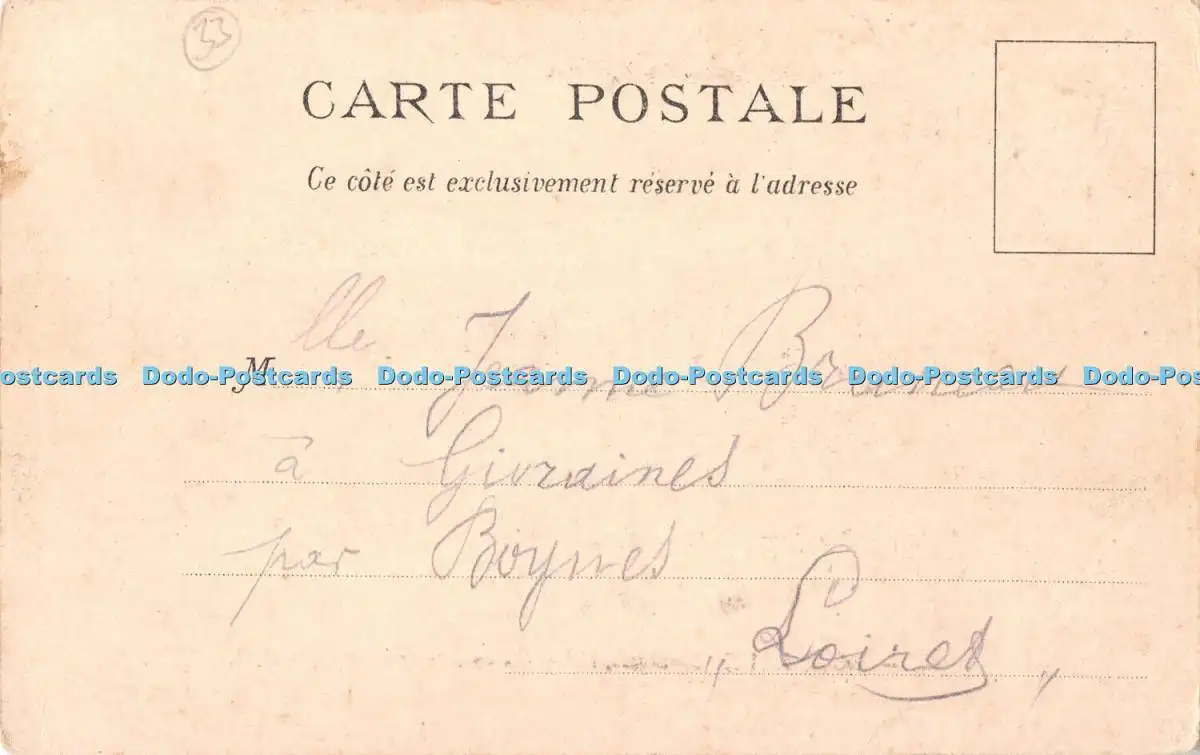 33
CARTE POSTALE
Ce côté est exclusivement réservé à l'adresse
Mlle Jeanne Bruneau
ostcards Dodo-Postcards Dodo-Postcards Dodo-Postcards Dodo-Postcards Dodo-Pos
à Givraines
par Boynes
" Loiret "